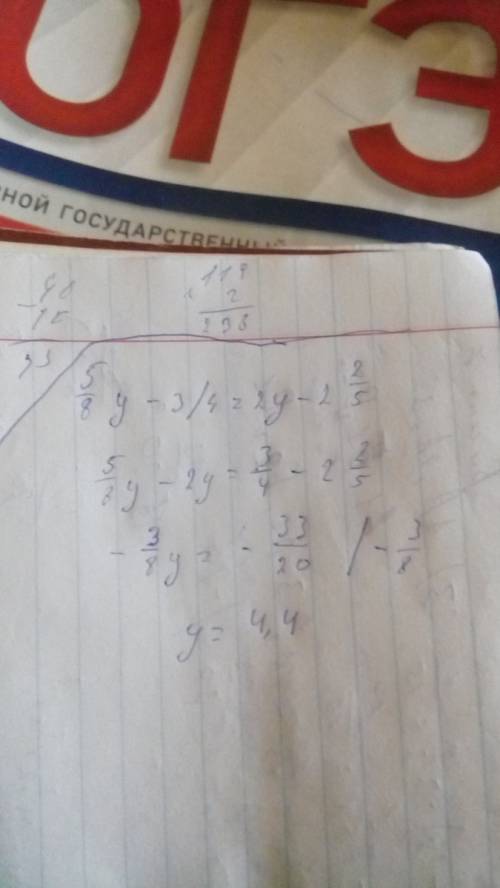 ОГЭ
НОЙ ГОСУДАРСТВЕННЫЙ
119
2
238
5/8 y - 3/4 = 2y - 2 2/5
5/8 y - 2y = 3/4 - 2 2/5
- 3/8 y = - 33/20 / - 3/8
y = 4,4